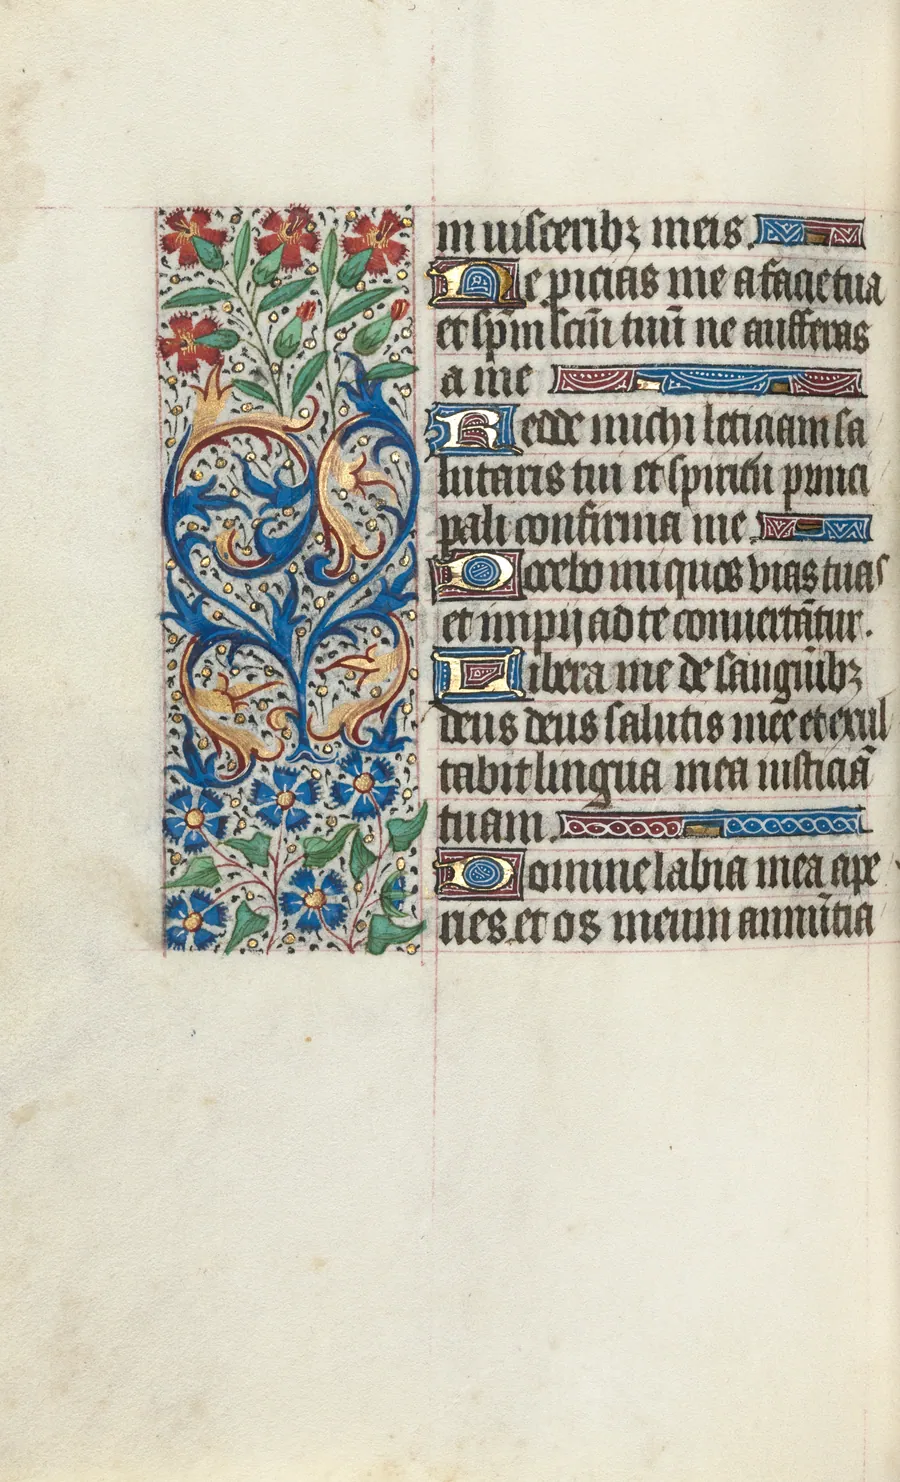 in uisceribꝫ meis.
Ne p̱icias me a facie tua
et sp̄m sc̄m tuū ne aufferas
a me
Redde michi leticiam sa
lutaris tui et spiritu princi
pali confirma me.
Docebo iniquos vias tuas
et impij ad te conuertātur.
Libera me de sanguībꝫ
deus deus salutis mee et exul
tabit lingua mea iusticiā
tuam.
Domine labia mea ape
ries. et os meum annūtia